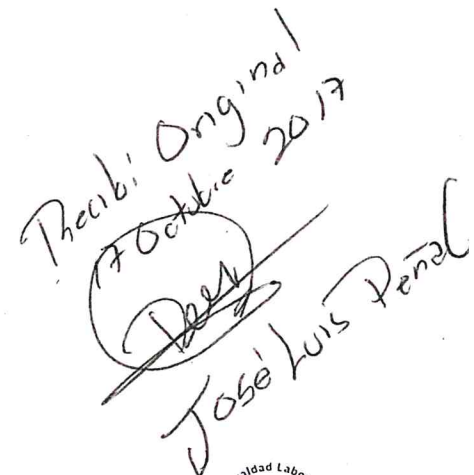 Recibí Original
17 Octubre 2017
José Luis Peña
aldad Labo